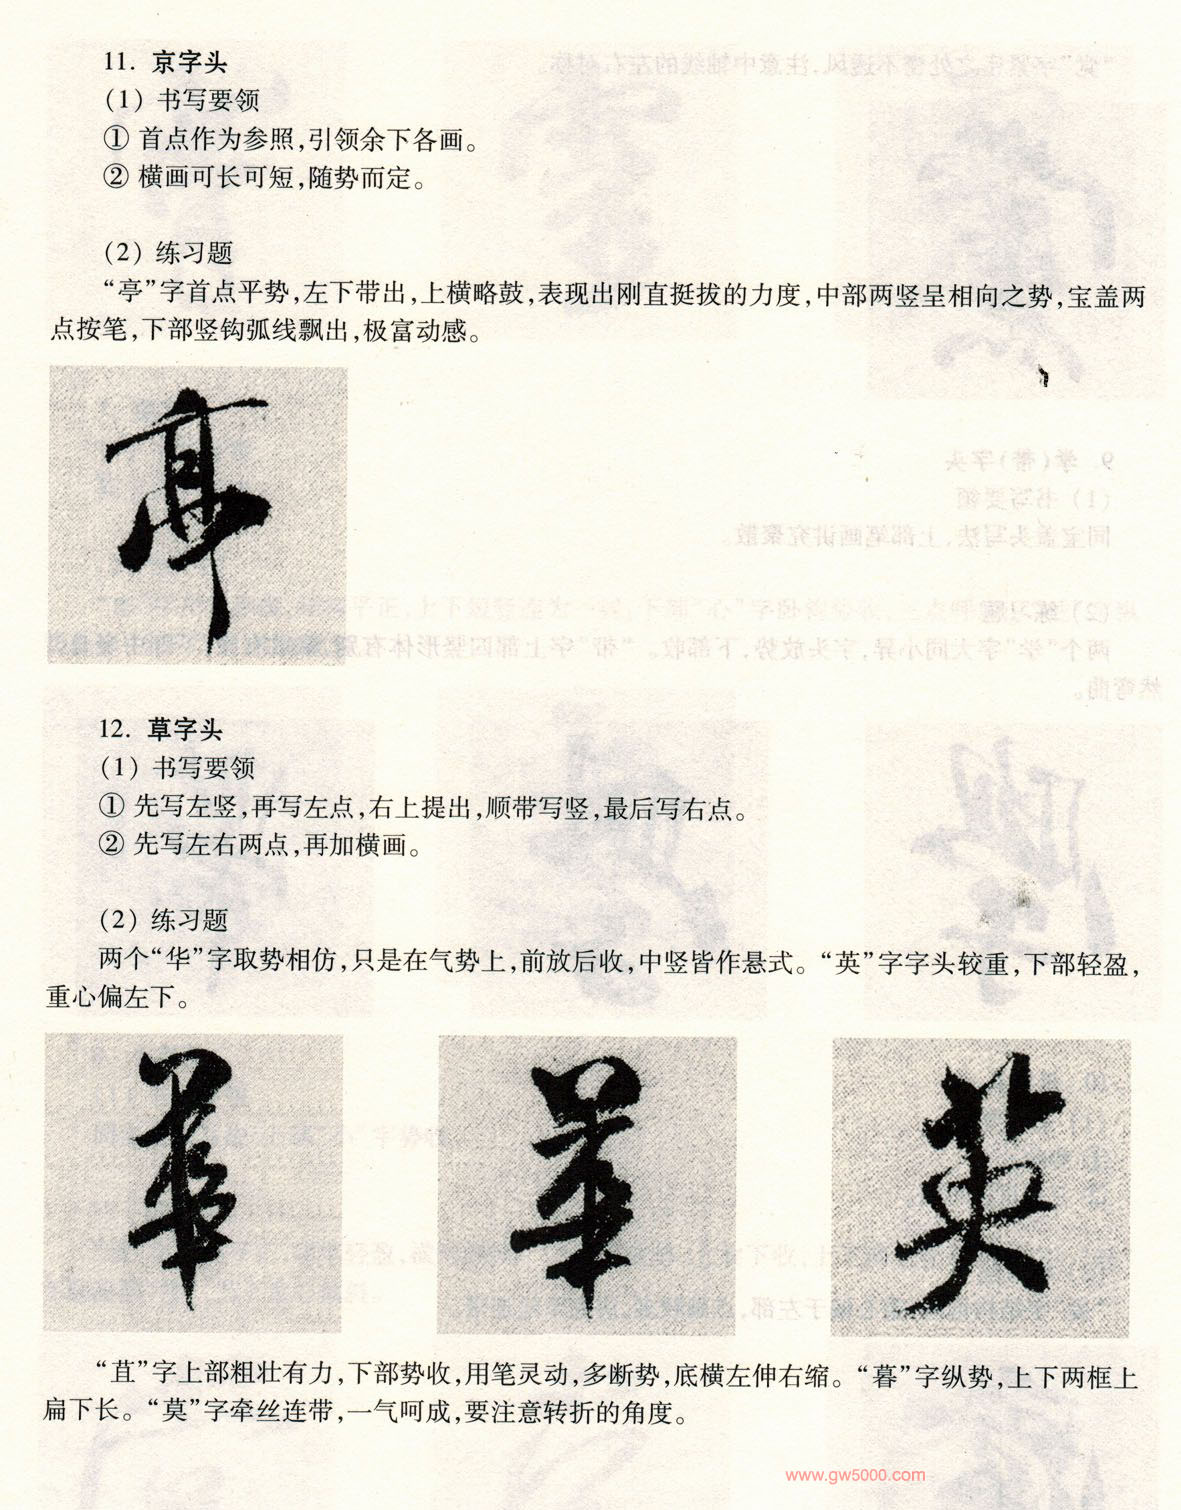 11. 京字头
(1) 书写要领
① 首点作为参照,引领余下各画。
② 横画可长可短,随势而定。
(2) 练习题
“亭”字首点平势,左下带出,上横略鼓,表现出刚直挺拔的力度,中部两竖呈相向之势,宝盖两
点按笔,下部竖钩弧线飘出,极富动感。
亭
12. 草字头
(1) 书写要领
① 先写左竖,再写左点,右上提出,顺带写竖,最后写右点。
② 先写左右两点,再加横画。
(2) 练习题
两个“华”字取势相仿,只是在气势上,前放后收,中竖皆作悬式。“英”字字头较重,下部轻盈,
重心偏左下。
華 華 英
“苴”字上部粗壮有力,下部势收,用笔灵动,多断势,底横左伸右缩。“暮”字纵势,上下两框上
扁下长。“莫”字牵丝连带,一气呵成,要注意转折的角度。
www.gw5000.com